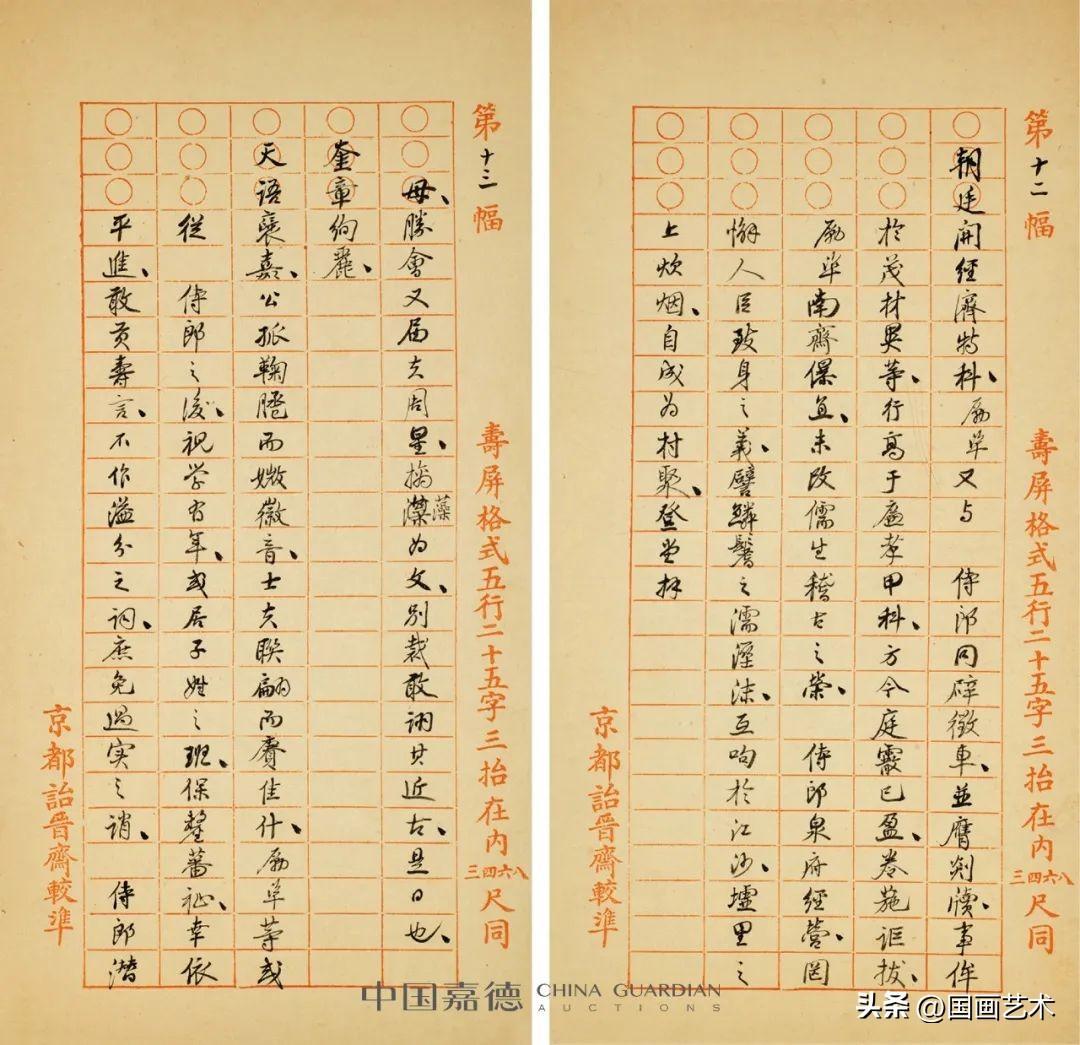 第十二幅
壽屏格式五行二十五字三抬在內三四六八尺同
朝廷開經濟特科、勵準又与 侍郎同辟徵車、並膺剡牘、事侔
於茂材異等、行高于廉孝甲科、方今庭靈已盈、卷葹詎拔、
勵準南齋儤直、未改儒生稽古之榮、 侍郎泉府經營、罔
懈人臣致身之義、譬鱗鬐之濡溼沫、互呴於江沙、墟里之
上炊烟、自成為村聚、登堂拜
京都詒晉齋較準
第十三幅
壽屏格式五行二十五字三抬在內三四六八尺同
母、勝會又届夫周星、摛藻為文、別裁敢詡其近古、是日也、
奎章絢麗、
天語褒嘉、公孤鞠䠆而媺徽音、士夫聯翩而賡佳什、勵準等或
從 侍郎之後、視學有年、或居子姓之班、保釐蕃祉、幸依
平進、敢貢壽言、不作溢分之詞、庶免過实之誚、 侍郎潛
京都詒晉齋較準
中国嘉德 CHINA GUARDIAN AUCTIONS
头条 @国画艺术